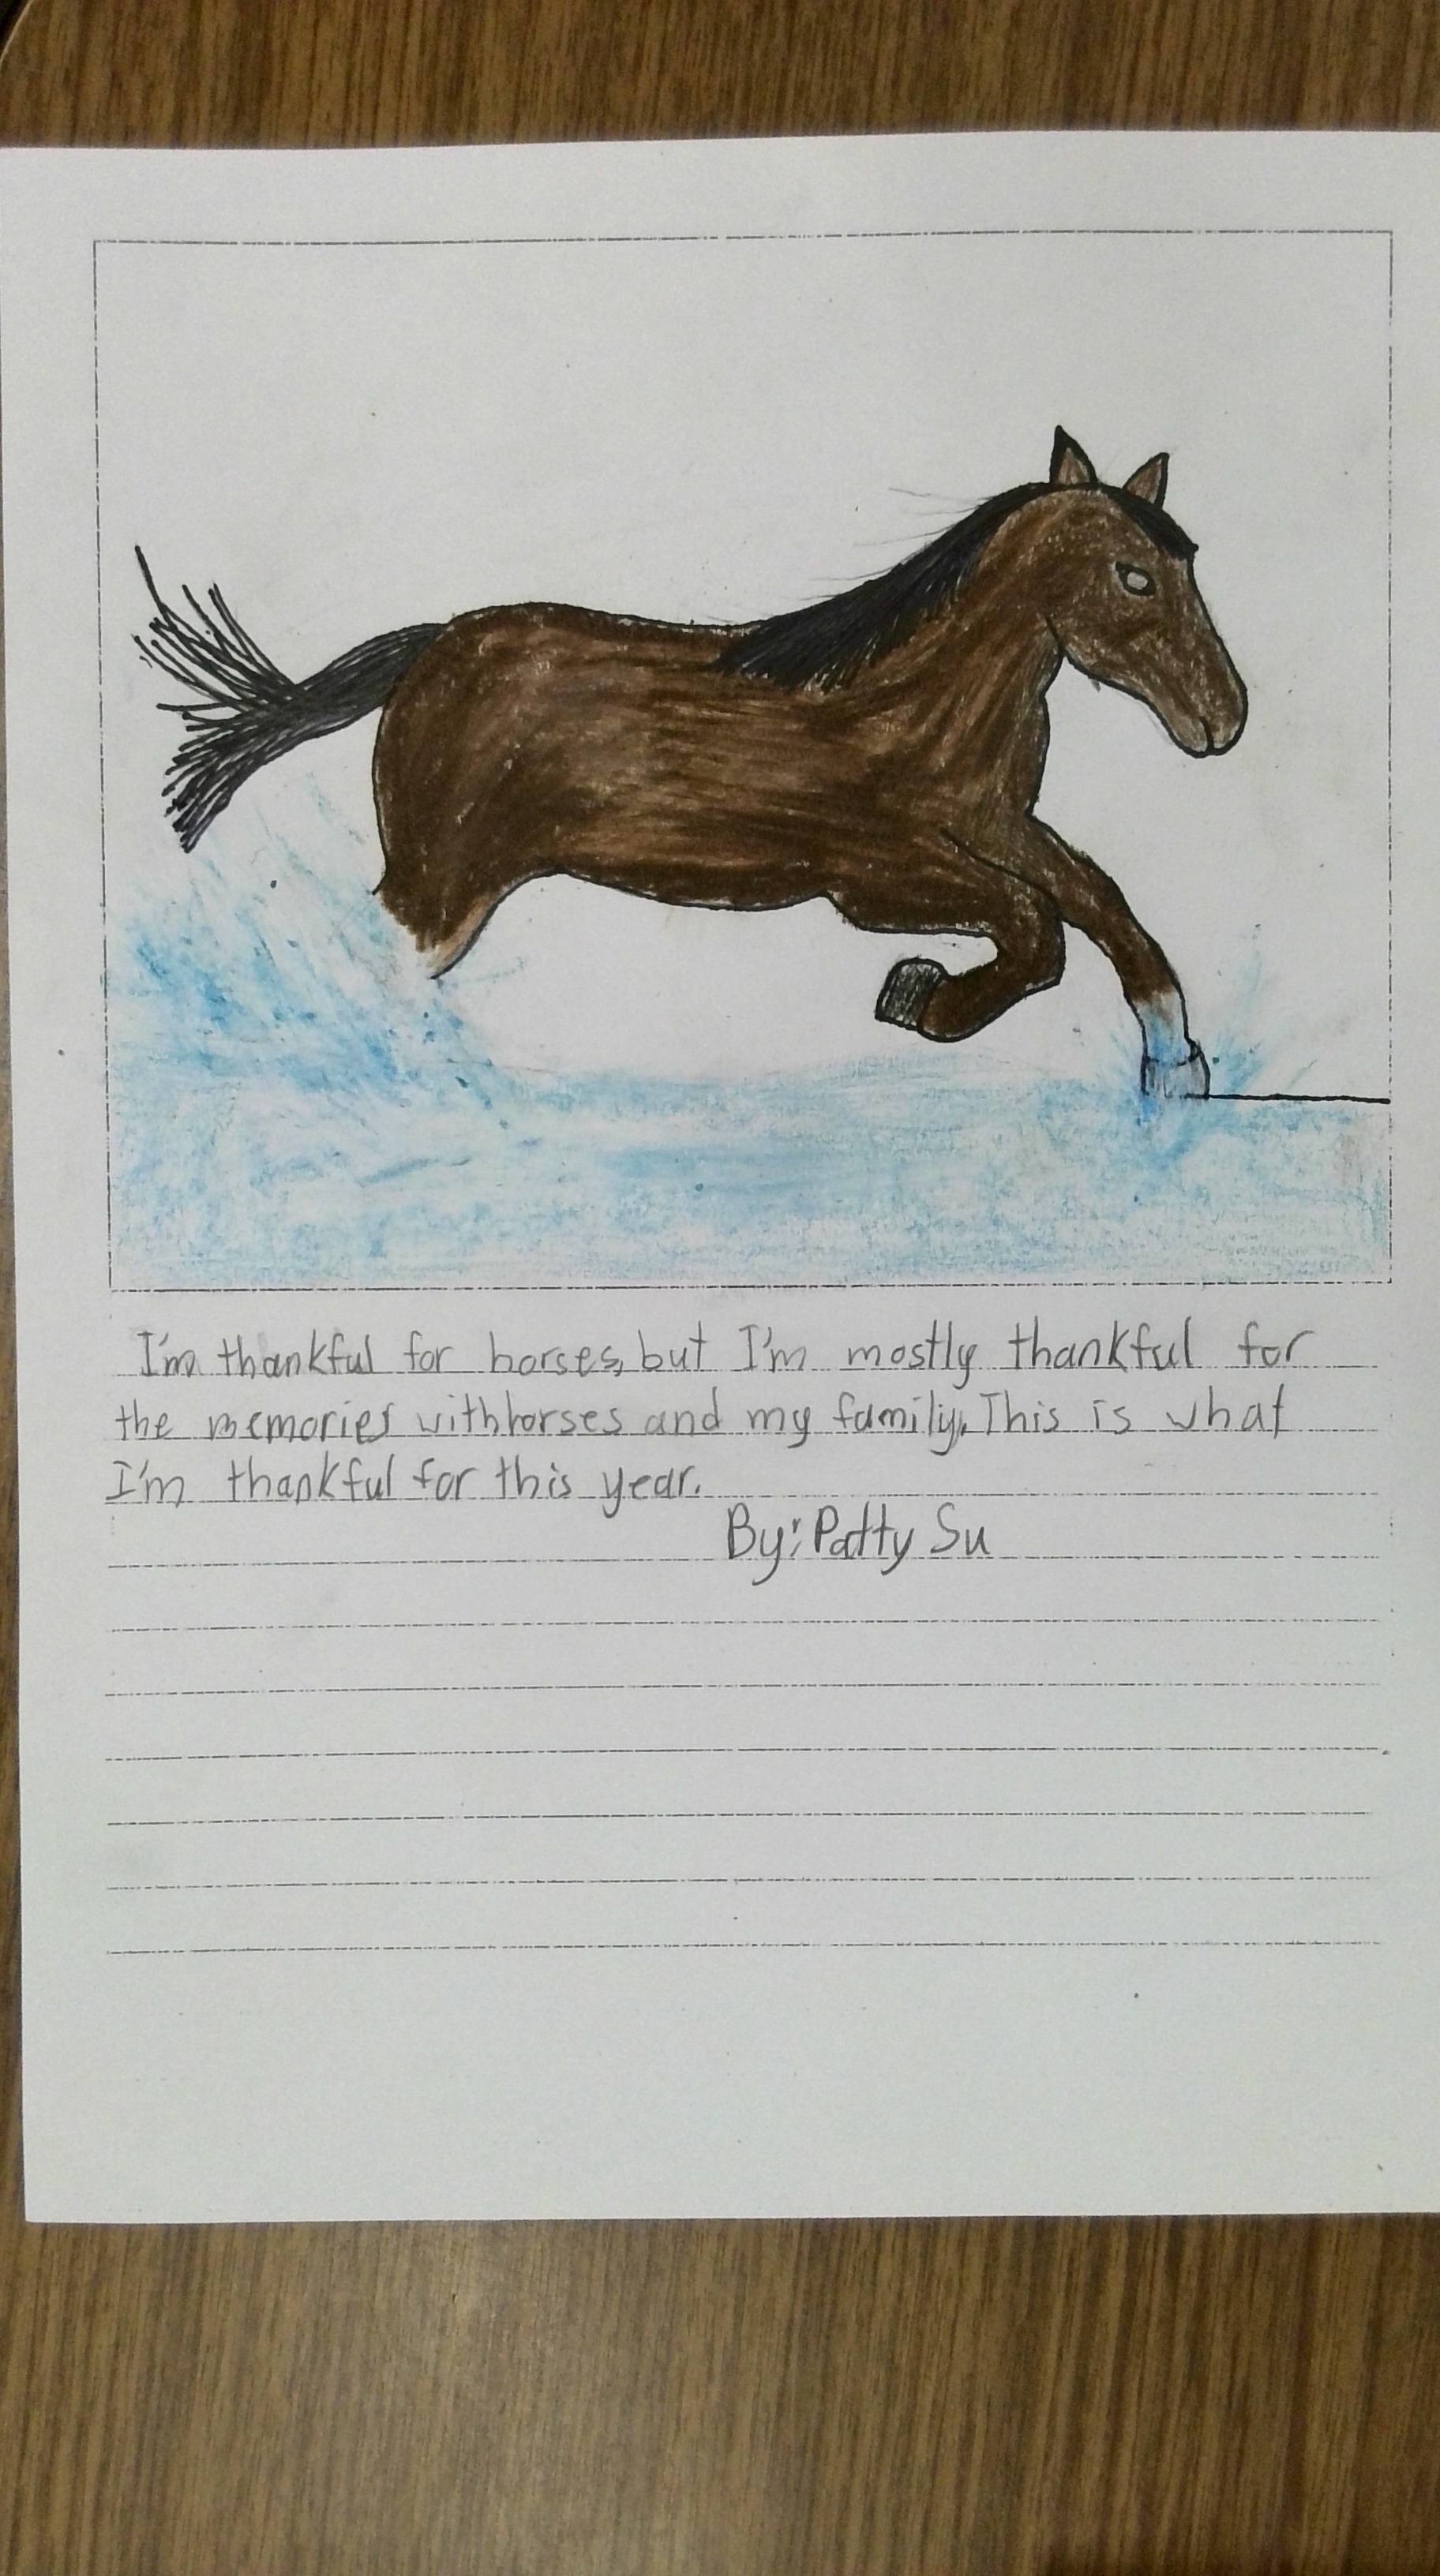 I'm thankful for horses, but I'm mostly thankful for
the memories with horses and my family. This is what
I'm thankful for this year.
By: Patty Su